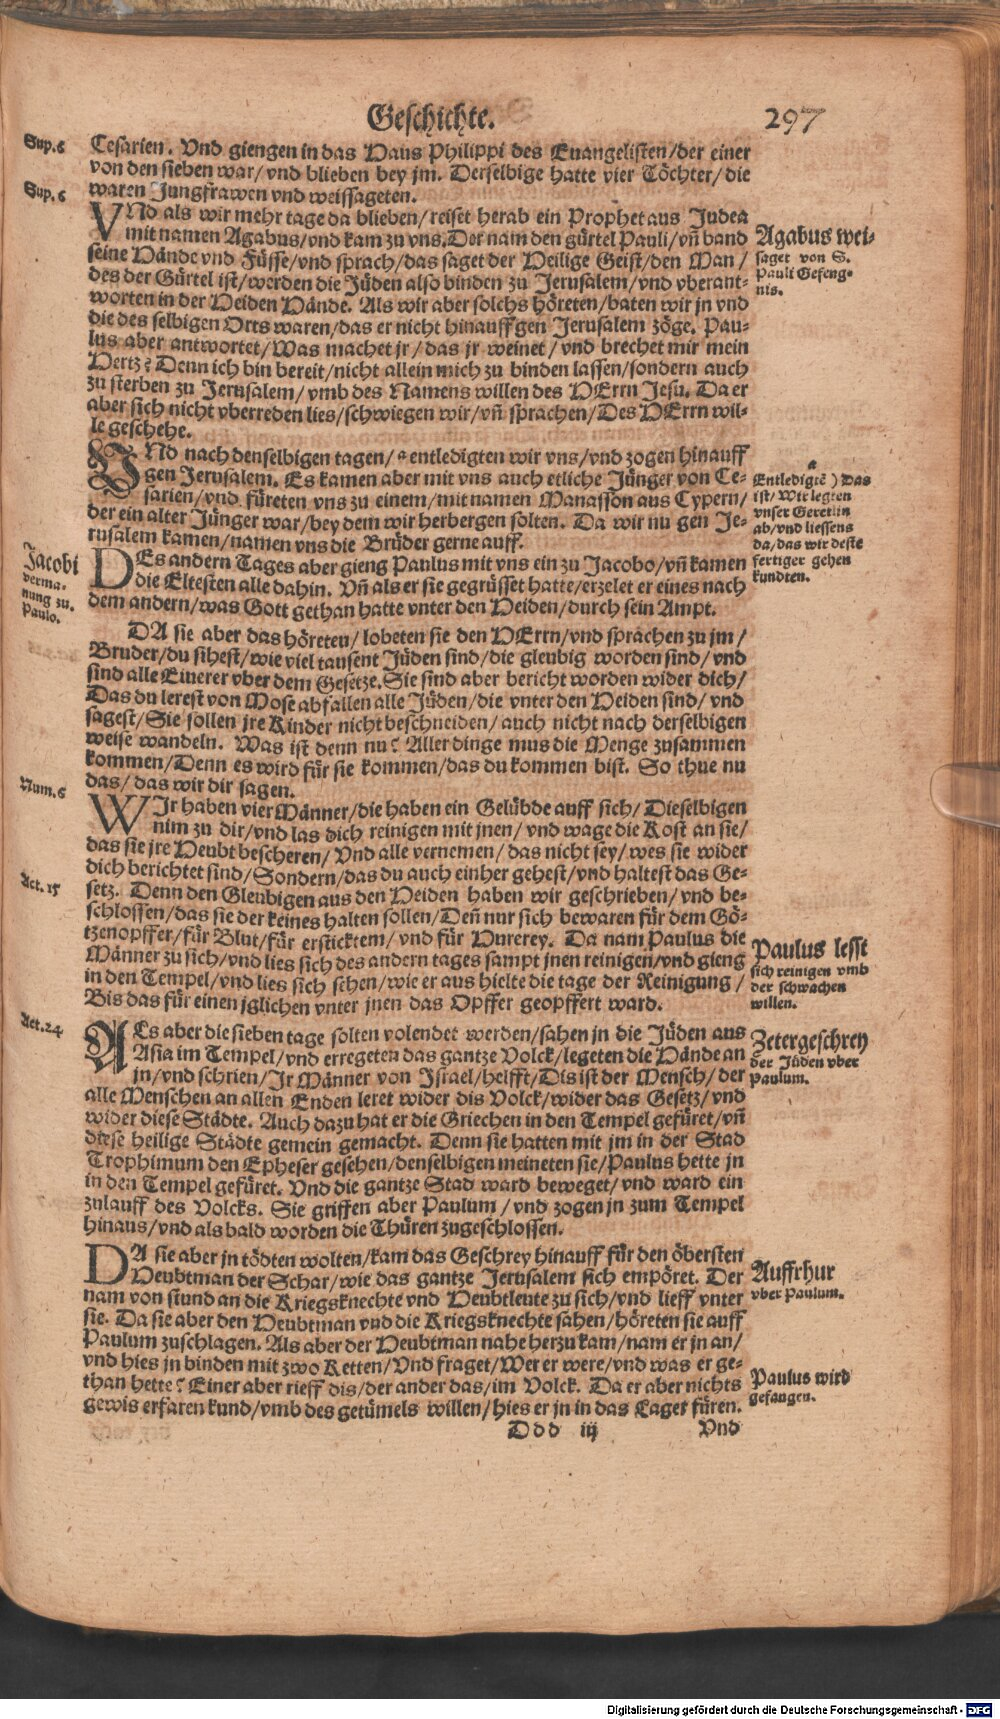 Geschichte. 297
Sup. 6
Cesarien. Vnd giengen in das Haus Philippi des Euangelisten/der einer
von den sieben war/vnd blieben bey jm. Derselbige hatte vier Töchter/die
Sup. 6
waren Jungfrawen vnd weissageten.
VNd als wir mehr tage da blieben/reiset herab ein Prophet aus Judea
mit namen Agabus/vnd kam zu vns. Der nam den gürtel Pauli/vñ band
seine Hände vnd Füsse/vnd sprach/das saget der Heilige Geist/den Man/
des der Gürtel ist/werden die Jüden also binden zu Jerusalem/vnd vberant-
worten in der Heiden Hände. Als wir aber solchs höreten/baten wir jn vnd
die des selbigen Orts waren/das er nicht hinauff gen Jerusalem zöge. Pau-
lus aber antwortet/Was machet jr/das jr weinet/vnd brechet mir mein
Hertz? Denn ich bin bereit/nicht allein mich zu binden lassen/sondern auch
zu sterben zu Jerusalem/vmb des Namens willen des HErrn Jesu. Da er
aber sich nicht vberreden lies/schwiegen wir/vñ sprachen/Des HErrn wil-
le geschehe.
Agabus wei-
saget von S.
Pauli Gefeng-
nis.
VNd nach denselbigen tagen/a entledigten wir vns/vnd zogen hinauff
gen Jerusalem. Es kamen aber mit vns auch etliche Jünger von Ce-
sarien/vnd füreten vns zu einem/mit namen Manasson aus Cypern/
der ein alter Jünger war/bey dem wir herbergen solten. Da wir nu gen Je-
rusalem kamen/namen vns die Brüder gerne auff.
a
Entledigtē) Das
ist/Wir legten
vnser Geret hin
ab/vnd liessens
da/das wir deste
fertiger gehen
kundten.
Jacobi
verma-
nung zu
Paulo.
DEs andern Tages aber gieng Paulus mit vns ein zu Jacobo/vñ kamen
die Eltesten alle dahin. Vñ als er sie gegrüsset hatte/erzelet er eines nach
dem andern/was Gott gethan hatte vnter den Heiden/durch sein Ampt.
DA sie aber das höreten/lobeten sie den HErrn/vnd sprachen zu jm/
Bruder/du sihest/wie viel tausent Jüden sind/die gleubig worden sind/vnd
sind alle Eiuerer vber dem Gesetze. Sie sind aber bericht worden wider dich/
Das du lerest von Mose abfallen alle Jüden/die vnter den Heiden sind/vnd
sagest/Sie sollen jre Kinder nicht beschneiden/auch nicht nach derselbigen
weise wandeln. Was ist denn nu? Aller dinge mus die Menge zusammen
kommen/Denn es wird für sie kommen/das du kommen bist. So thue nu
das/das wir dir sagen.
Num. 6
WIr haben vier Männer/die haben ein Gelübde auff sich/Dieselbigen
nim zu dir/vnd las dich reinigen mit jnen/vnd wage die Kost an sie/
das sie jre Heubt bescheren/Vnd alle vernemen/das nicht sey/wes sie wider
dich berichtet sind/Sondern/das du auch einher gehest/vnd haltest das Ge-
Act. 15
setz. Denn den Gleubigen aus den Heiden haben wir geschrieben/vnd be-
schlossen/das sie der keines halten sollen/Deñ nur sich bewaren für dem Gö-
tzenopffer/für Blut/für ersticktem/vnd für Hurerey. Da nam Paulus die
Männer zu sich/vnd lies sich des andern tages sampt jnen reinigen/vnd gieng
in den Tempel/vnd lies sich sehen/wie er aus hielte die tage der Reinigung/
Bis das für einen jglichen vnter jnen das Opffer geopffert ward.
Paulus lesst
sich reinigen vmb
der schwachen
willen.
Act. 24
ALs aber die sieben tage solten volendet werden/sahen jn die Jüden aus
Asia im Tempel/vnd erregeten das gantze Volck/legeten die Hände an
jn/vnd schrien/Jr Männer von Israel/helfft/Dis ist der Mensch/der
alle Menschen an allen Enden leret wider dis Volck/wider das Gesetz/vnd
wider diese Städte. Auch dazu hat er die Griechen in den Tempel gefüret/vñ
diese heilige Städte gemein gemacht. Denn sie hatten mit jm in der Stad
Trophimum den Epheser gesehen/denselbigen meineten sie/Paulus hette jn
in den Tempel gefüret. Vnd die gantze Stad ward beweget/vnd ward ein
zulauff des Volcks. Sie griffen aber Paulum/vnd zogen jn zum Tempel
hinaus/vnd als bald worden die Thüren zugeschlossen.
Zetergeschrey
der Jüden vber
Paulum.
DA sie aber jn tödten wolten/kam das Geschrey hinauff für den öbersten
Heubtman der Schar/wie das gantze Jerusalem sich empöret. Der
nam von stund an die Kriegsknechte vnd Heubtleute zu sich/vnd lieff vnter
sie. Da sie aber den Heubtman vnd die Kriegsknechte sahen/höreten sie auff
Paulum zuschlagen. Als aber der Heubtman nahe herzu kam/nam er jn an/
vnd hies jn binden mit zwo Ketten/Vnd fraget/Wer er were/vnd was er ge-
than hette? Einer aber rieff dis/der ander das/im Volck. Da er aber nichts
gewis erfaren kund/vmb des getümels willen/hies er jn in das Lager füren.
Auffrhur
vber Paulum.
Paulus wird
gefangen.
Ddd iij Vnd
Digitalisierung gefördert durch die Deutsche Forschungsgemeinschaft - DFG